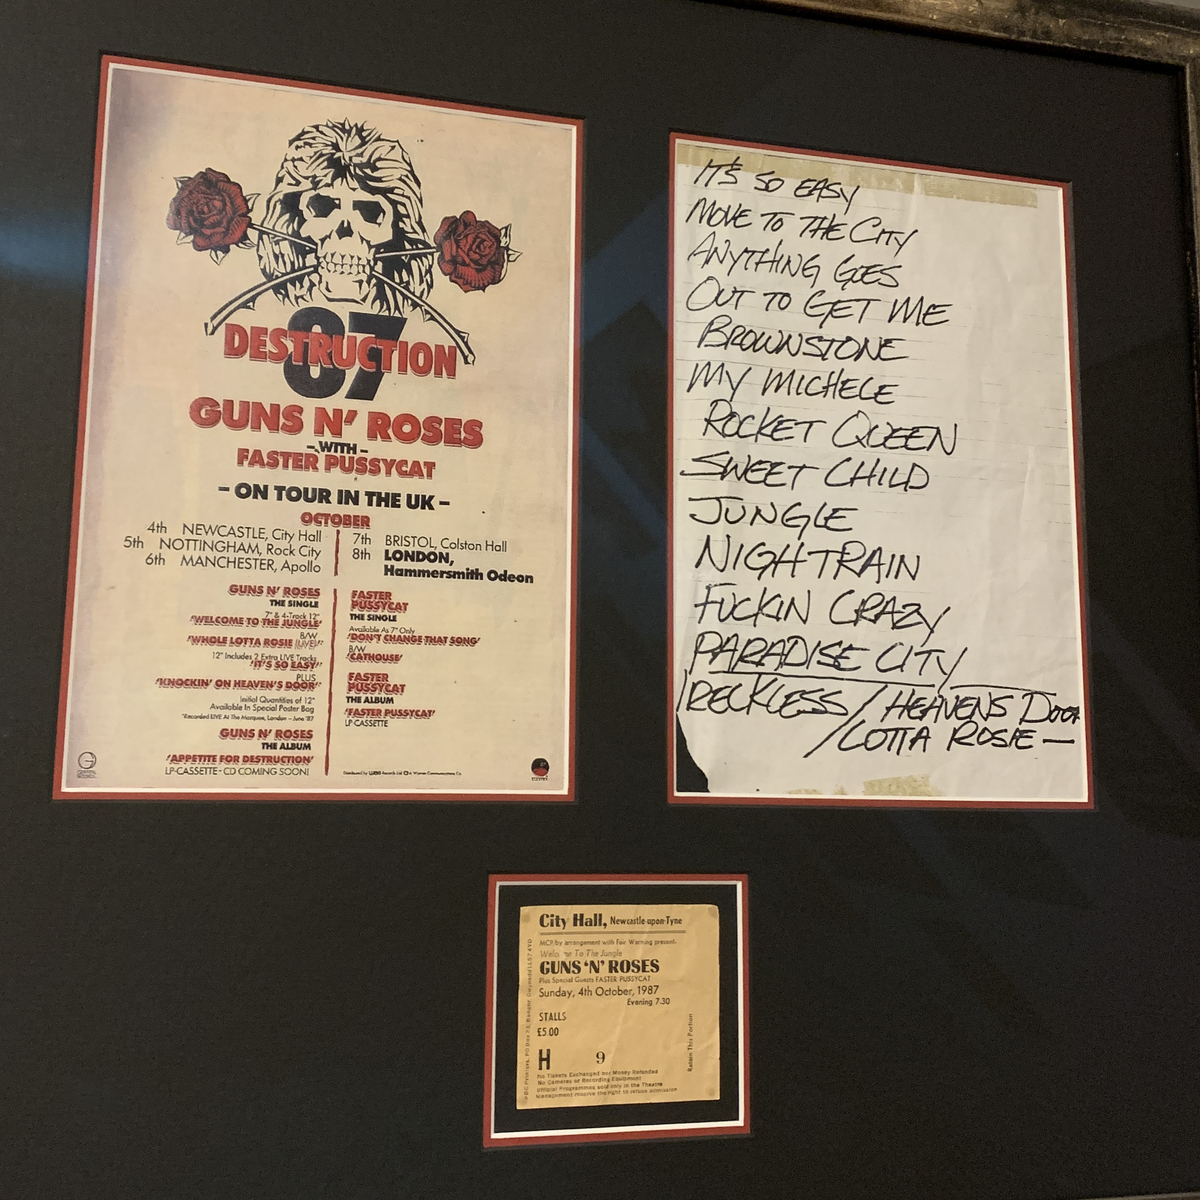 87
DESTRUCTION
GUNS N' ROSES
-WITH-
FASTER PUSSYCAT
- ON TOUR IN THE UK -
OCTOBER
4th NEWCASTLE, City Hall
5th NOTTINGHAM, Rock City
6th MANCHESTER, Apollo
7th BRISTOL, Colston Hall
8th LONDON,
Hammersmith Odeon
GUNS N' ROSES
THE SINGLE
7" & 4-Track 12"
'WELCOME TO THE JUNGLE'
B/W
'WHOLE LOTTA ROSIE (LIVE)'
12" Includes 2 Extra LIVE Tracks
'IT'S SO EASY'
PLUS
'KNOCKIN' ON HEAVEN'S DOOR'
Initial Quantities of 12"
Available In Special Poster Bag
*Recorded LIVE At The Marquee, London - June '87
GUNS N' ROSES
THE ALBUM
'APPETITE FOR DESTRUCTION'
LP-CASSETTE - CD COMING SOON!
FASTER
PUSSYCAT
THE SINGLE
Available As 7" Only
'DON'T CHANGE THAT SONG'
B/W
'CATHOUSE'
FASTER
PUSSYCAT
THE ALBUM
'FASTER PUSSYCAT'
LP-CASSETTE
Distributed by Records Ltd A Warner Communications Co.
IT'S SO EASY
MOVE TO THE CITY
ANYTHING GOES
OUT TO GET ME
BROWNSTONE
MY MICHELE
ROCKET QUEEN
SWEET CHILD
JUNGLE
NIGHTRAIN
FUCKIN CRAZY
PARADISE CITY
RECKLESS / HEAVENS DOOR
/ LOTTA ROSIE —
City Hall, Newcastle-upon-Tyne
MCP by arrangement with Fair Warning present-
Welcome To The Jungle
GUNS 'N' ROSES
Plus Special Guests FASTER PUSSYCAT
Sunday, 4th October, 1987
Evening 7.30
STALLS
£5.00
H 9
No Tickets Exchanged nor Money Refunded
No Cameras or Recording Equipment
Official Programmes sold only in the Theatre
Management reserve the right to refuse admission
Retain This Portion